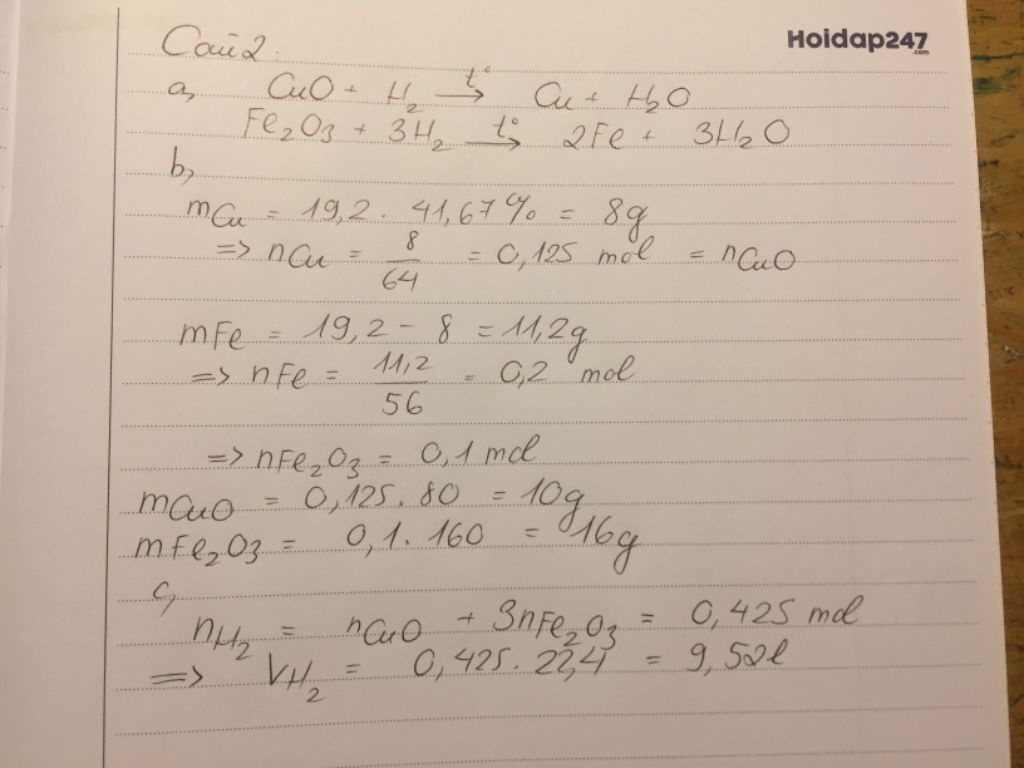 Hoidap247
.com
Câu 2.
a, CuO + H₂ →t° Cu + H₂O
Fe₂O₃ + 3H₂ →t° 2Fe + 3H₂O
b,
mCu = 19,2 . 41,67% = 8g
=> nCu = 8/64 = 0,125 mol = nCuO
mFe = 19,2 - 8 = 11,2g
=> nFe = 11,2/56 = 0,2 mol
=> nFe₂O₃ = 0,1 mol
mCuO = 0,125.80 = 10g
mFe₂O₃ = 0,1.160 = 16g
c,
nH₂ = nCuO + 3nFe₂O₃ = 0,425 mol
=> VH₂ = 0,425.22,4 = 9,52l